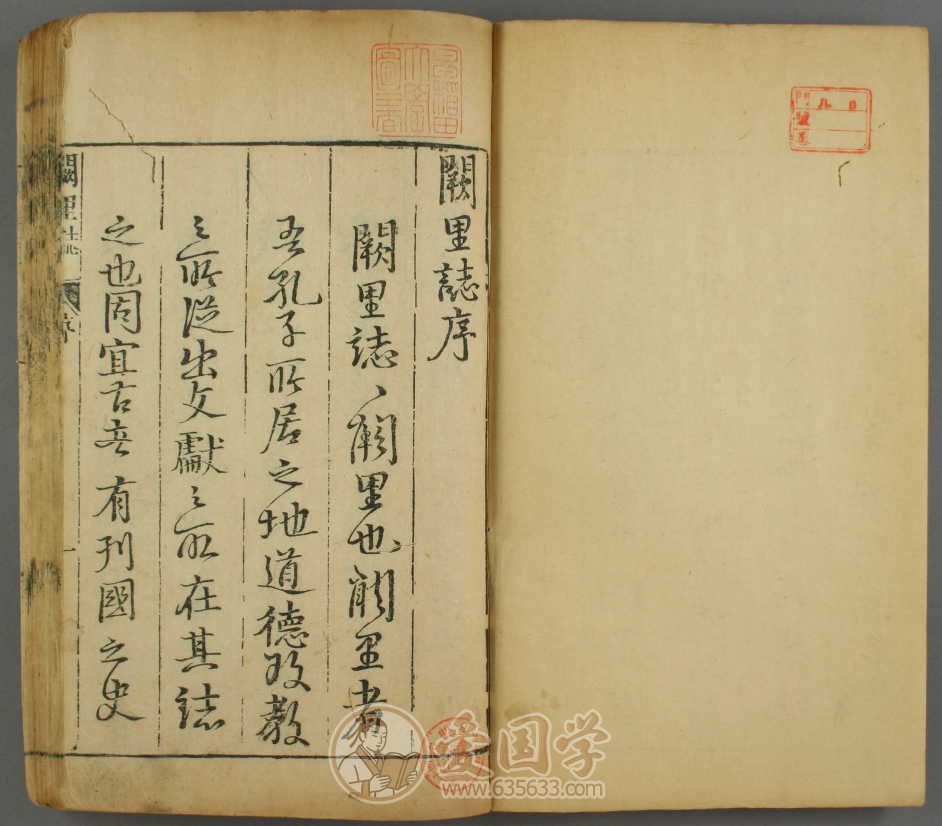 闕里誌序
闕里誌〻闕里也闕里者
吾孔子所居之地道德政教
之所從出文獻之所在其誌
之也固宜古者有列國之史
闕里誌
序
一
愛国学
www.635633.com